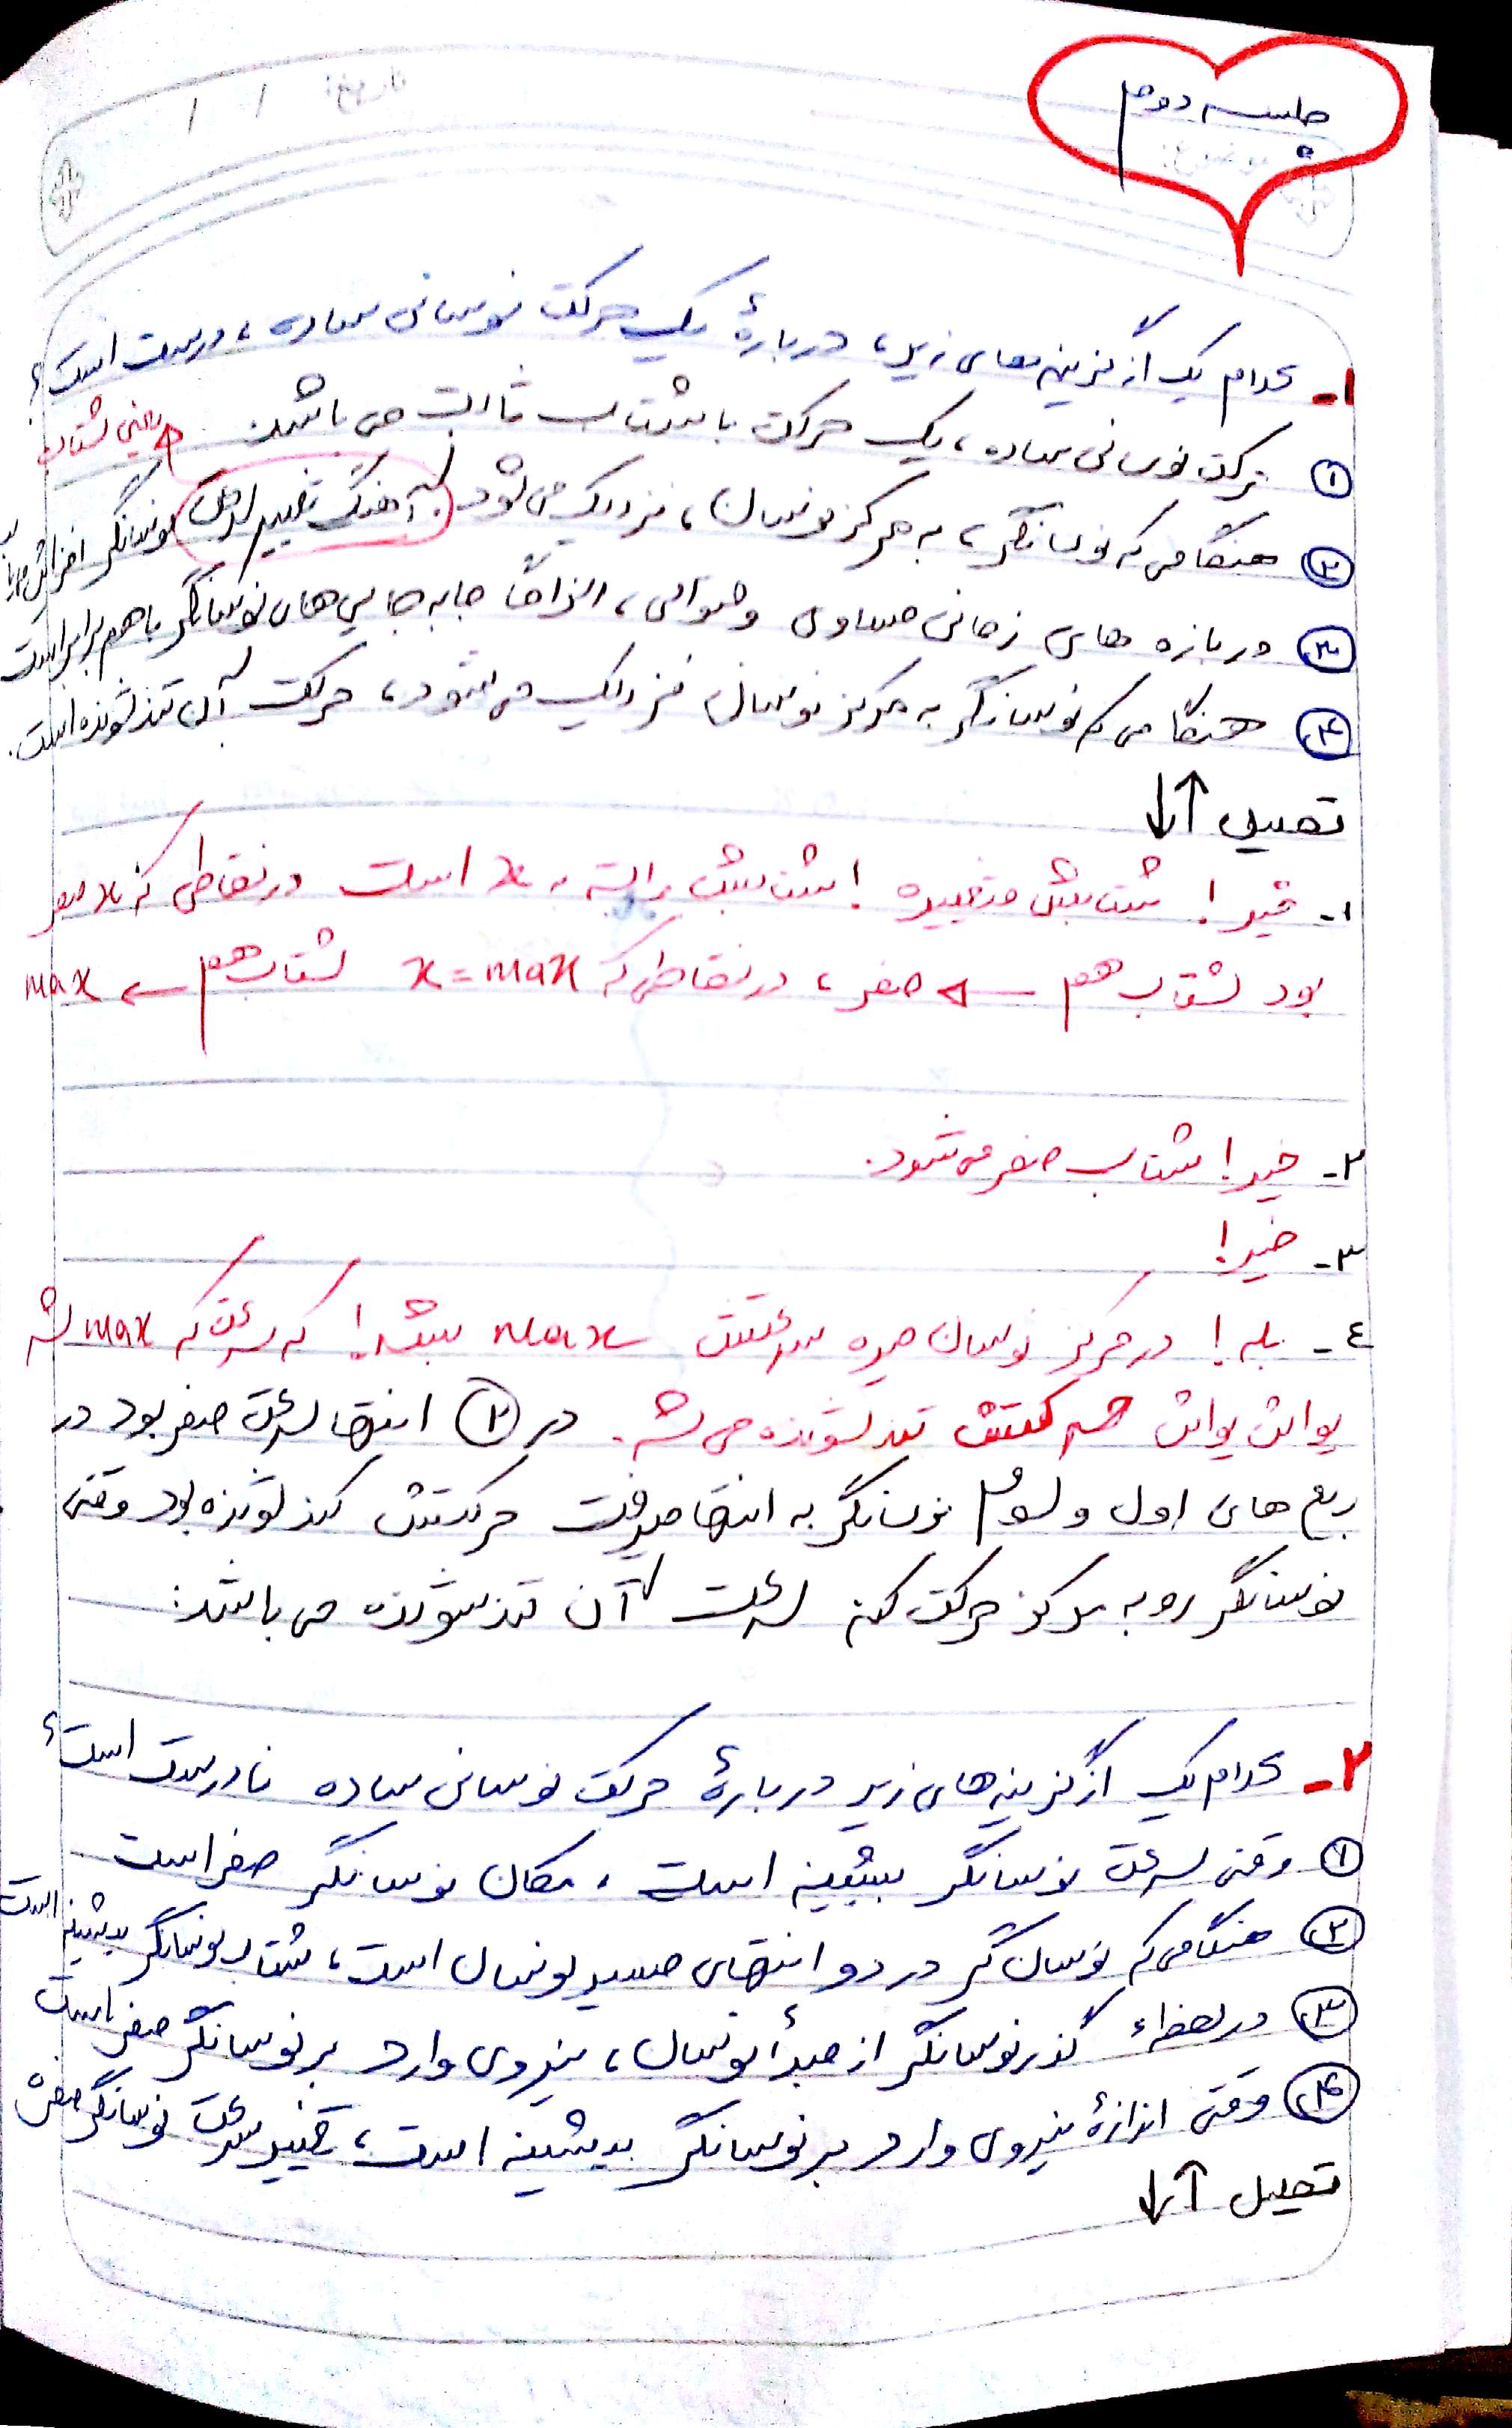 جلسه دوم
تاریخ: / /
۱- کدام یک از گزینه های زیر، دربارهٔ یک حرکت نوسانی ساده، درست است؟
۱ حرکت نوسانی ساده، یک حرکت با شتاب ثابت می باشد.
یعنی شتاب
۲ هنگامی که نوسانگر، به مرکز نوسان، نزدیک می شود، آهنگ تغییر سرعت نوسانگر افزایش می یابد
۳ در بازه های زمانی مساوی و متوالی، الزاماً جابه جایی های نوسانگر با هم برابر است
۴ هنگامی که نوسانگر به مرکز نوسان نزدیک می شود، حرکت آن تند شونده است.
تحلیل ↑↓
۱- خیر! شتابش متغییره! شتابش وابسته به x است در نقاطی که x صفر
بود شتاب هم ← صفر، در نقاطی که x = max شتاب هم ← max
۲- خیر! شتاب صفر می شود.
۳- خیر!
٤- بله! در مرکز نوسان میره سرعتش max میشه! که سرعت که max بشه
یواش یواش حرکتش تند شونده می شه. در ۲ انتها سرعت صفر بود در
ربع های اول و سوم نوسانگر به انتها میرفت حرکتش کند شونده بود وقتی
نوسانگر رو به مرکز حرکت کنه سرعت آن تند شونده می باشد:
۲- کدام یک از گزینه های زیر دربارهٔ حرکت نوسانی ساده نادرست است؟
۱ وقتی سرعت نوسانگر بیشینه است، مکان نوسانگر صفر است
۲ هنگامی که نوسان گر در دو انتهای مسیر نوسان است، شتاب نوسانگر بیشینه است
۳ در لحظهء گذر نوسانگر از مبدأ نوسان، نیروی وارد بر نوسانگر صفر است
۴ وقتی اندازهٔ نیروی وارد بر نوسانگر بیشینه است، تغییر سرعت نوسانگر صفر
تحلیل ↑↓